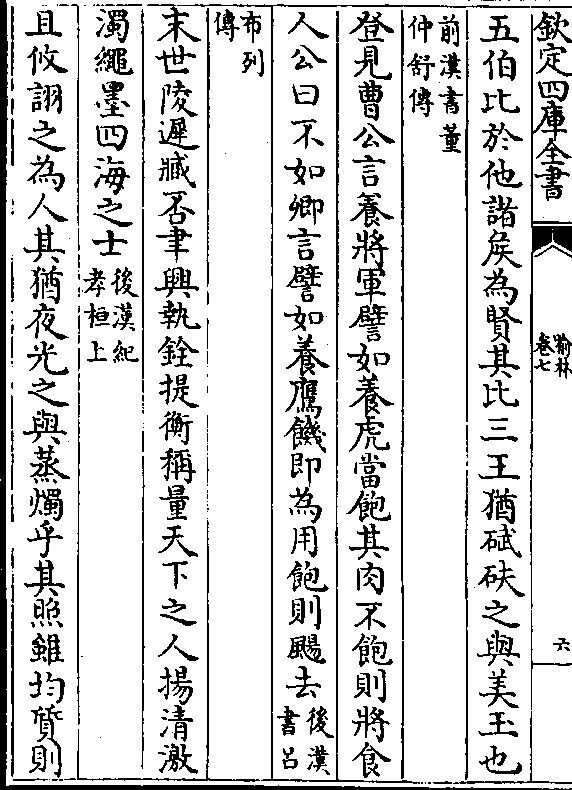 欽定四庫全書
喻林
卷七
六
五伯比於他諸矦為賢其比三王猶碔砆之與美玉也
前漢書董
仲舒傳
登見曹公言養將軍譬如養虎當飽其肉不飽則將食
人公曰不如卿言譬如養鷹饑即為用飽則颺去後漢
書吕
布列
傳
末世陵遲臧否聿興執銓提衡稱量天下之人揚清激
濁繩墨四海之士後漢紀
孝桓上
且攸詡之為人其猶夜光之與蒸燭乎其照雖均質則